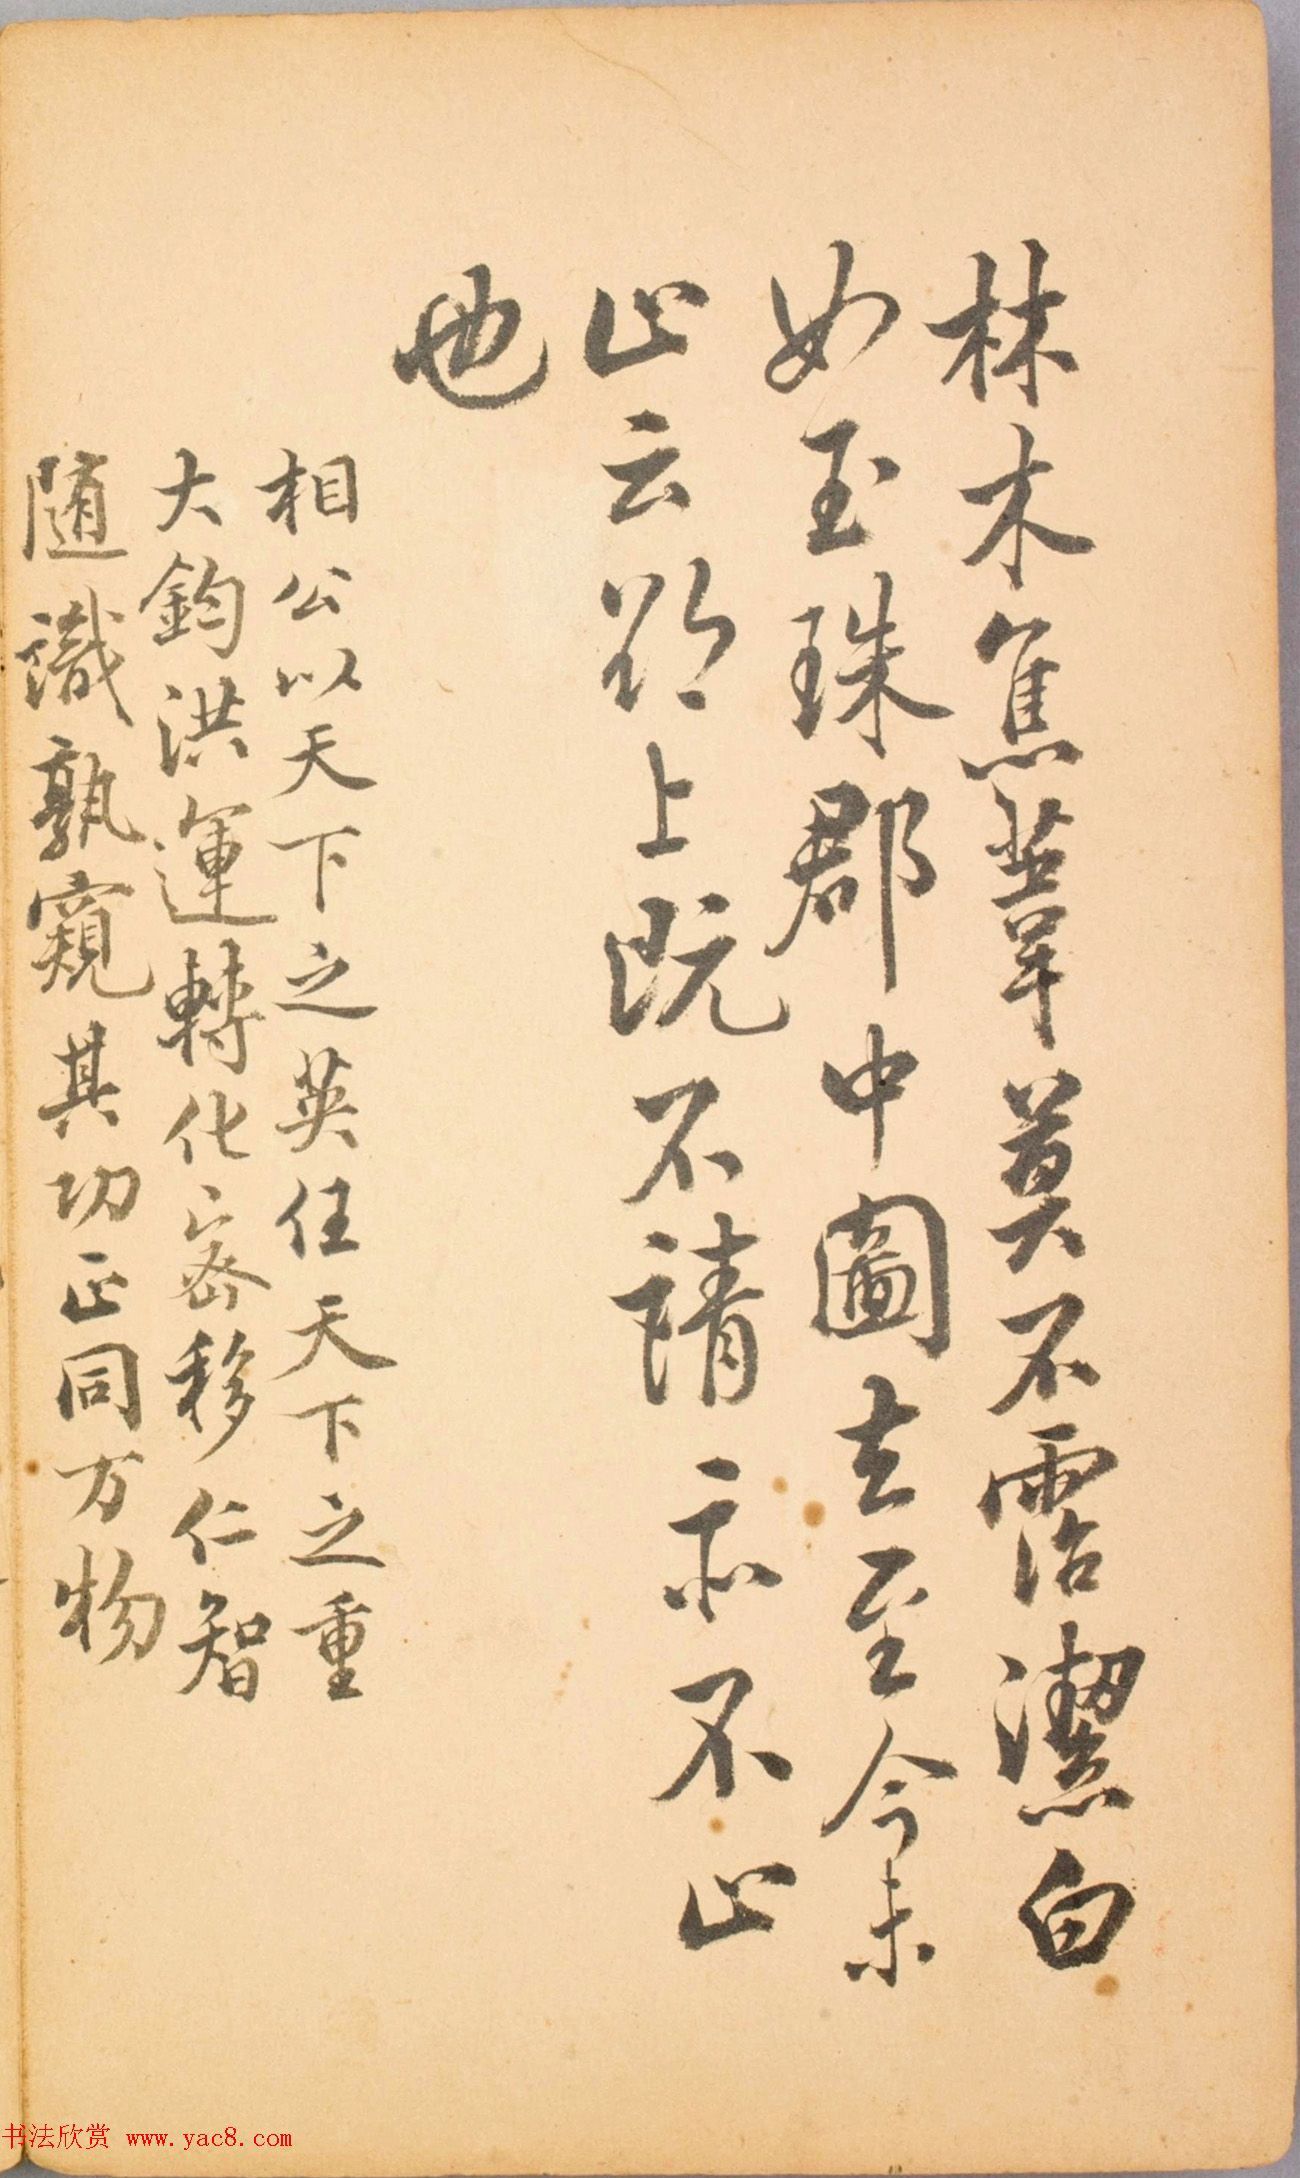 林木蕉葦莫不霑潔白
如玉珠郡中圖去至今未
止云欲上既不請亦不止
也
相公以天下之英任天下之重
大鈞洪運轉化密移仁智
隨識孰窺其功正同万物
书法欣赏 www.yac8.com